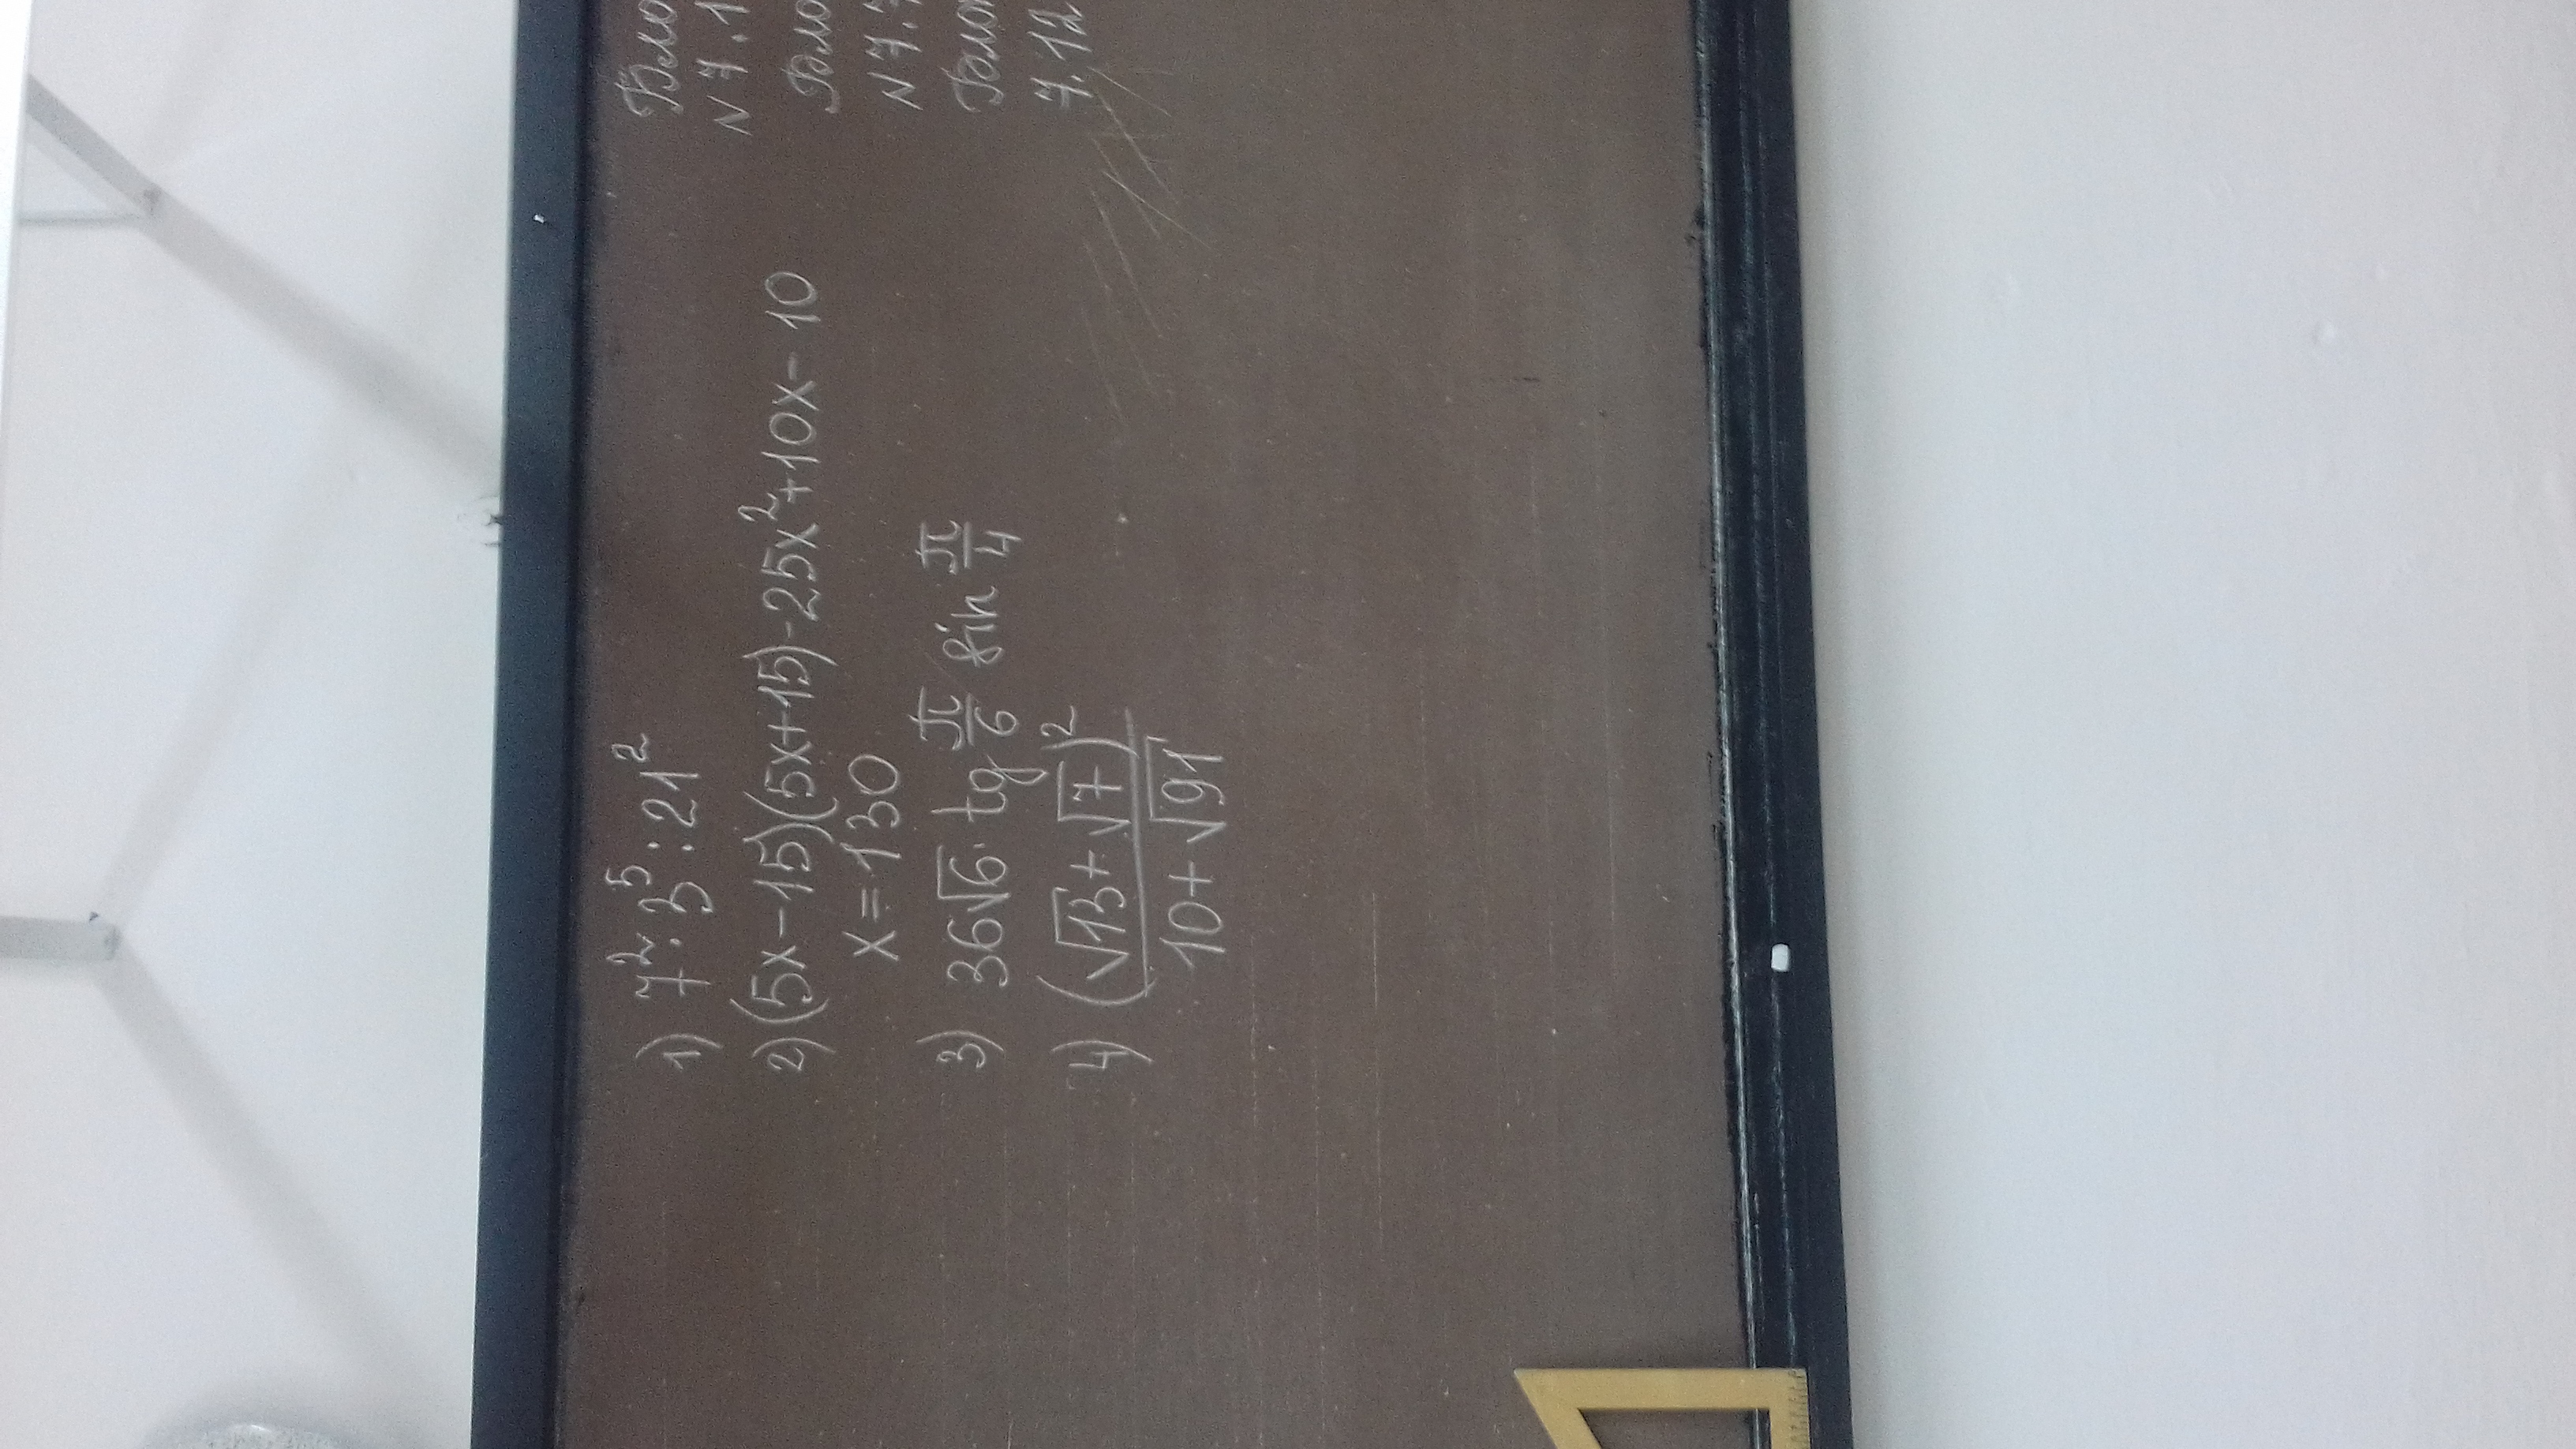 1) 7² · 3⁵ : 21²
2) (5x-15)(5x+15)-25x²+10x-10
x = 130
3) 36√6 · tg π/6 sin π/4
4) (√13 + √7)² / 10 + √91
N 7.1
N 7.
7.12